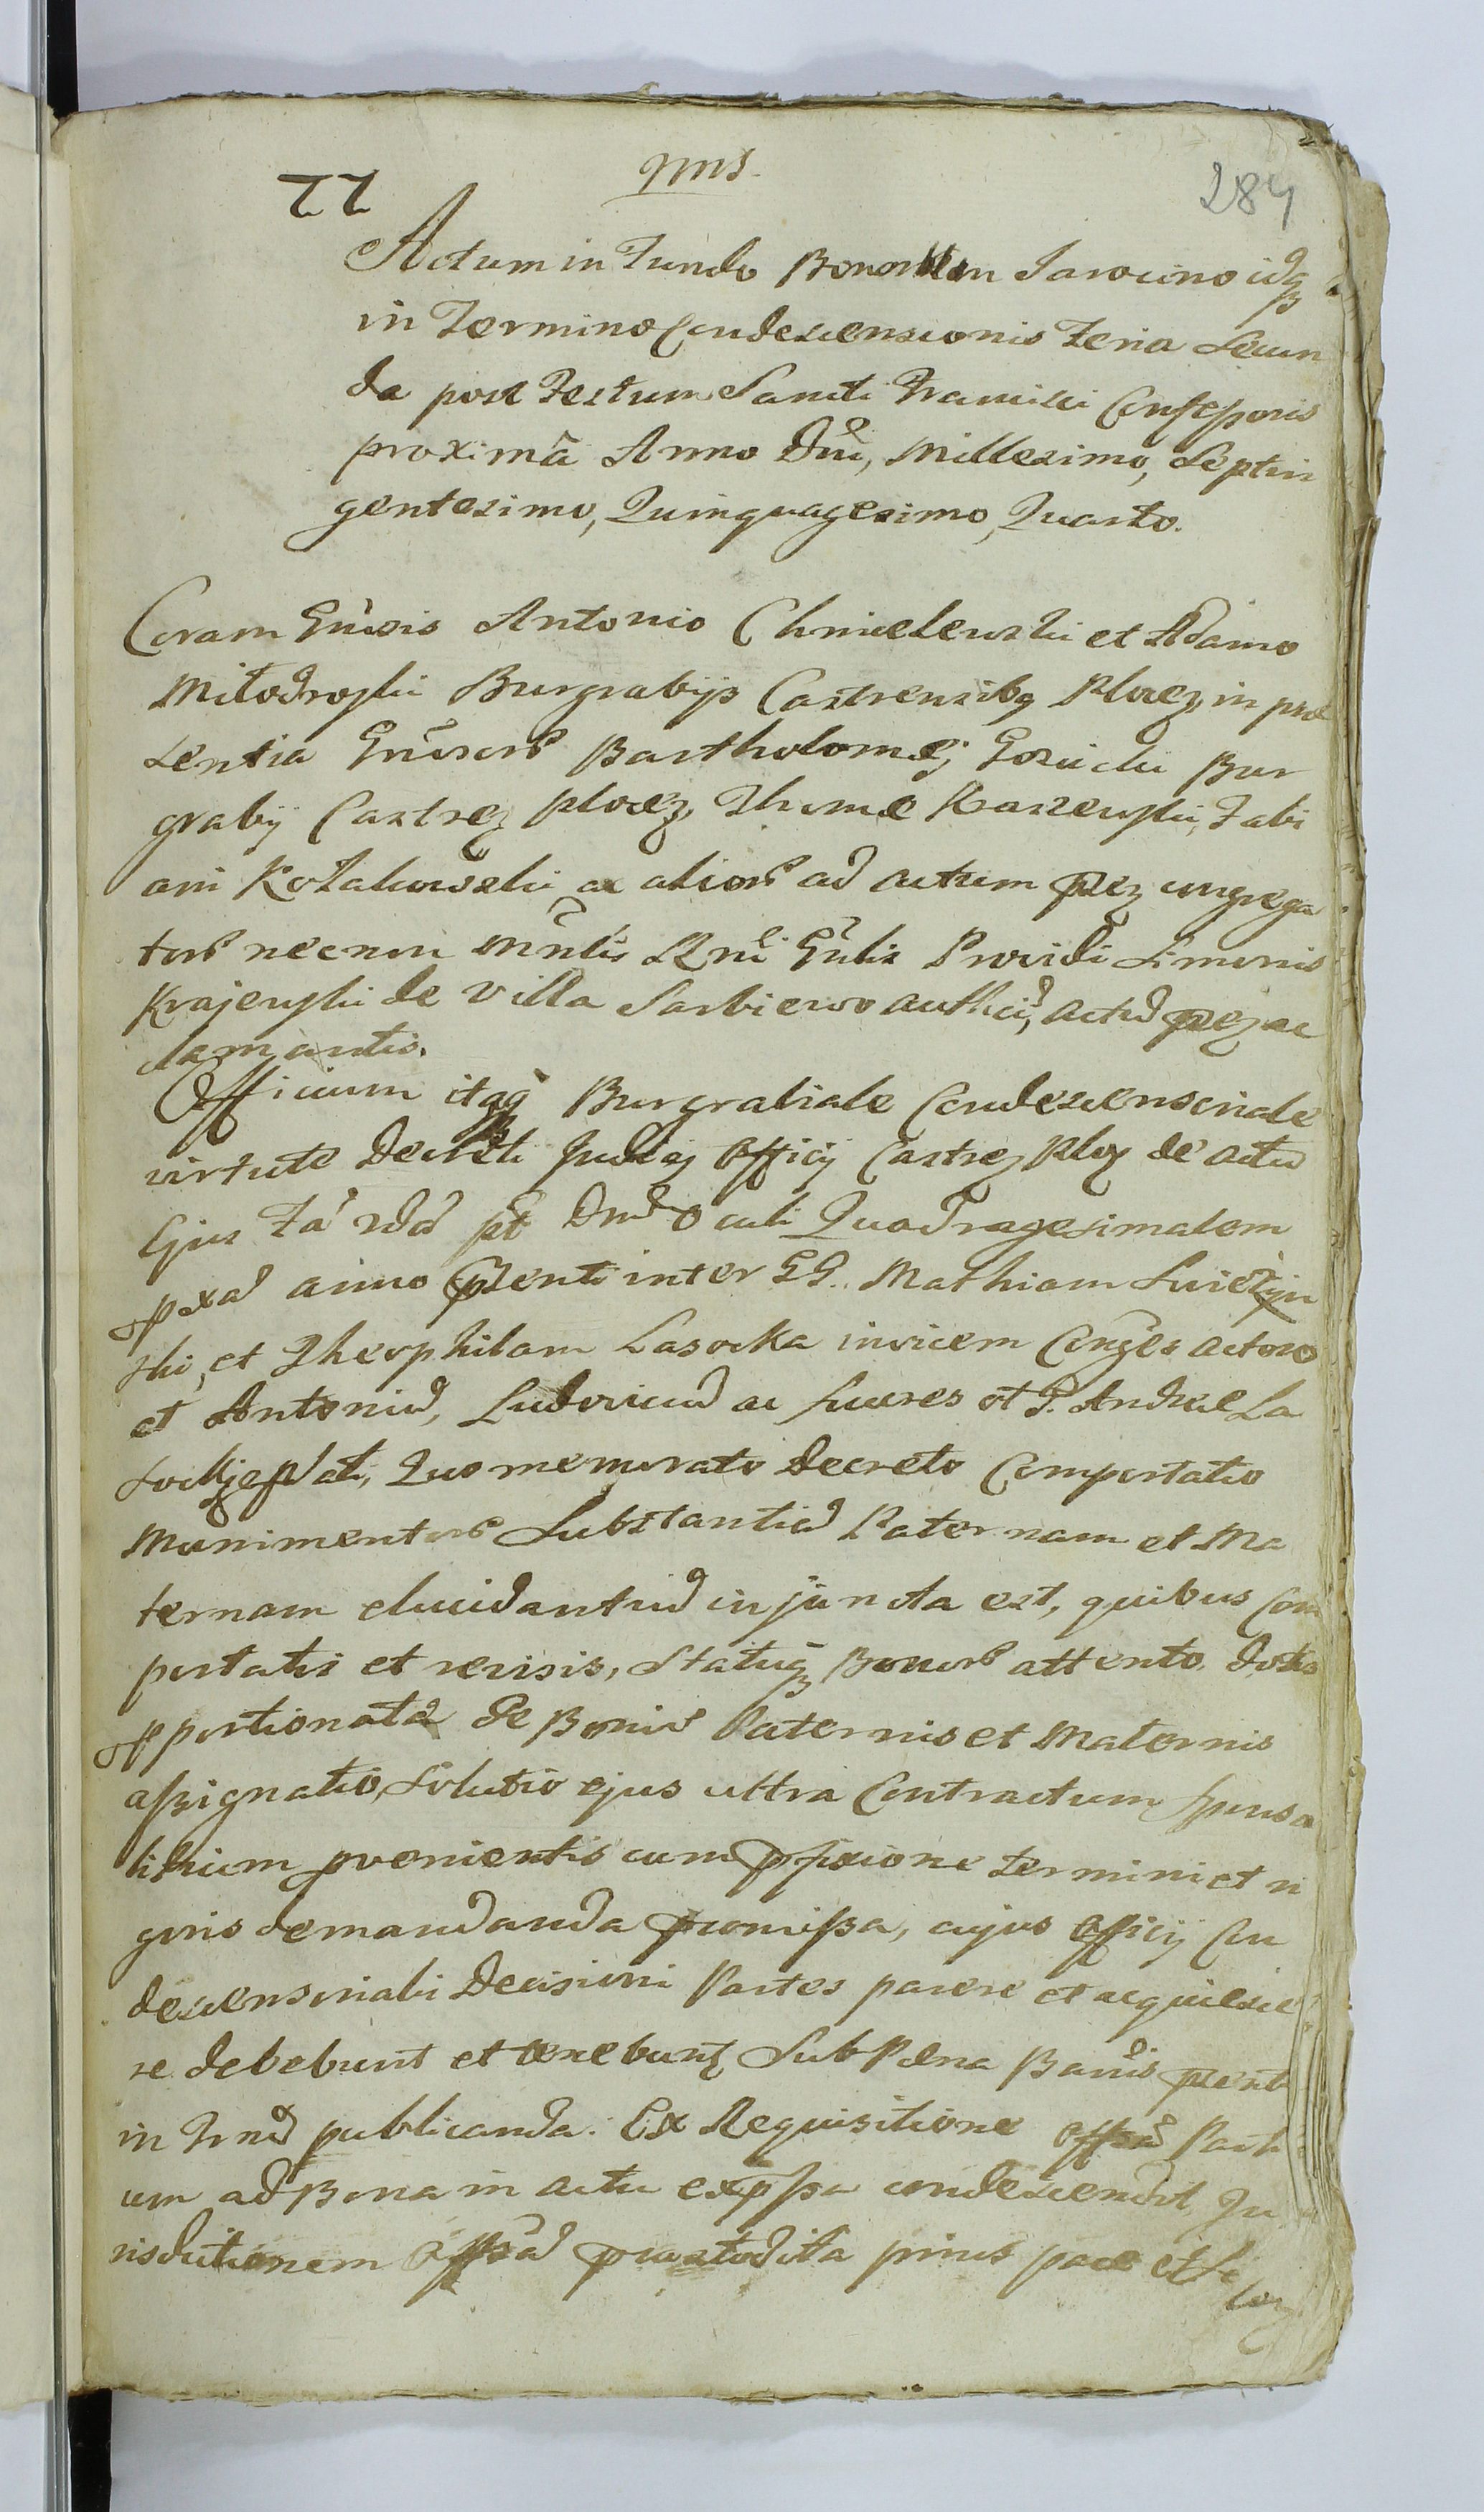 77
284
Actum in Fundo Bonorum Jarocino idq
in Termino Condescensionis Feria Secun
da post Festum Sancti Francisci Confessoris
proximã Anno Dñi, Millesimo, Septin
gentesimo, Quinquagesimo, Quarto.
Coram Gñsis Antonio Chmielewski et Adamo
Miłodroski Burgrabijs Castrensibq Plocz, in præ
sentia Gñsorũ Bartholomej Gozicki Bur
grabij Castrez plocz, Thomæ Kaszewski, Fabi
ani Kołakowski ac aliorũ ad actum pñz congrega
torũ necnon Mñtlis Rñi Gñlis Providi Simonis
Krajewski de Villa Sarbiewo authci, actũ pñz ac
clamantis.
Officium itaq Burgrabiale Condescensoriale
virtute Decreti Judicij Officij Castrez Plocz de actu
Ejus Fã 2da pt Dñicã Oculi Quadragesimalem
pxã anno pñti inter GG. Mathiam Swieży
ski, et Theophilam Lasocka invicem Cõnjges actores
et Antoniũ, Ludovicũ ac Sucres olt G. Andreæ La
socki, Quo memorato Decreto Comportatio
Munimentorũ Substantiã Paternam et Ma
ternam elucidantiũ injuncta est, quibus com
portatis et revisis, Statuq Bonorũ attento, dotis
pportionatæ de Bonis Paternis et Maternis
assignatio, Solutio ejus ultra Contractum Sponsa
litium provenientis cum præfixione termini et ri
goris demandanda præmissa, cujus Officij Con
descensoriali Decisioni Partes parere et acquiesce
re debebunt et tenebunt Sub Pæna Bañis pñti
in Trnõ publicanda. Ex Requisitione Parti
um ad Bona in actu expressa condescendit, Ju
risdictionem præcustodita prius pace et Si